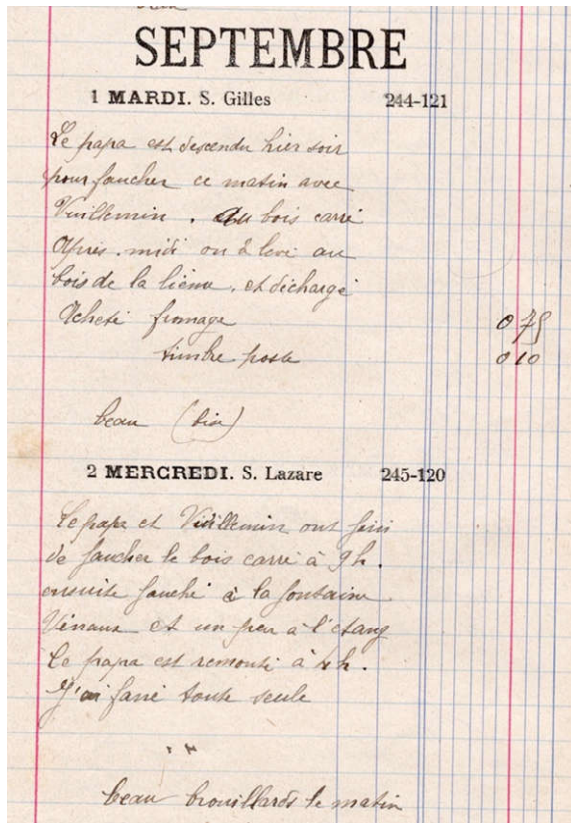 SEPTEMBRE
1 MARDI. S. Gilles 244-121
Le papa est descendu hier soir
pour faucher ce matin avec
Vuillemin. Au bois carré
Après-midi on a levé au
bois de la lième. et déchargé
Acheté fromage 0 75
timbre poste 0 10
beau (bise)
2 MERCREDI. S. Lazare 245-120
Le papa et Vuillemin ont fini
de faucher le bois carré à 9 h.
ensuite fauché à la fontaine
et un peu à l'étang
Le papa est remonté à 4 h.
J'ai fané toute seule
beau brouillards le matin